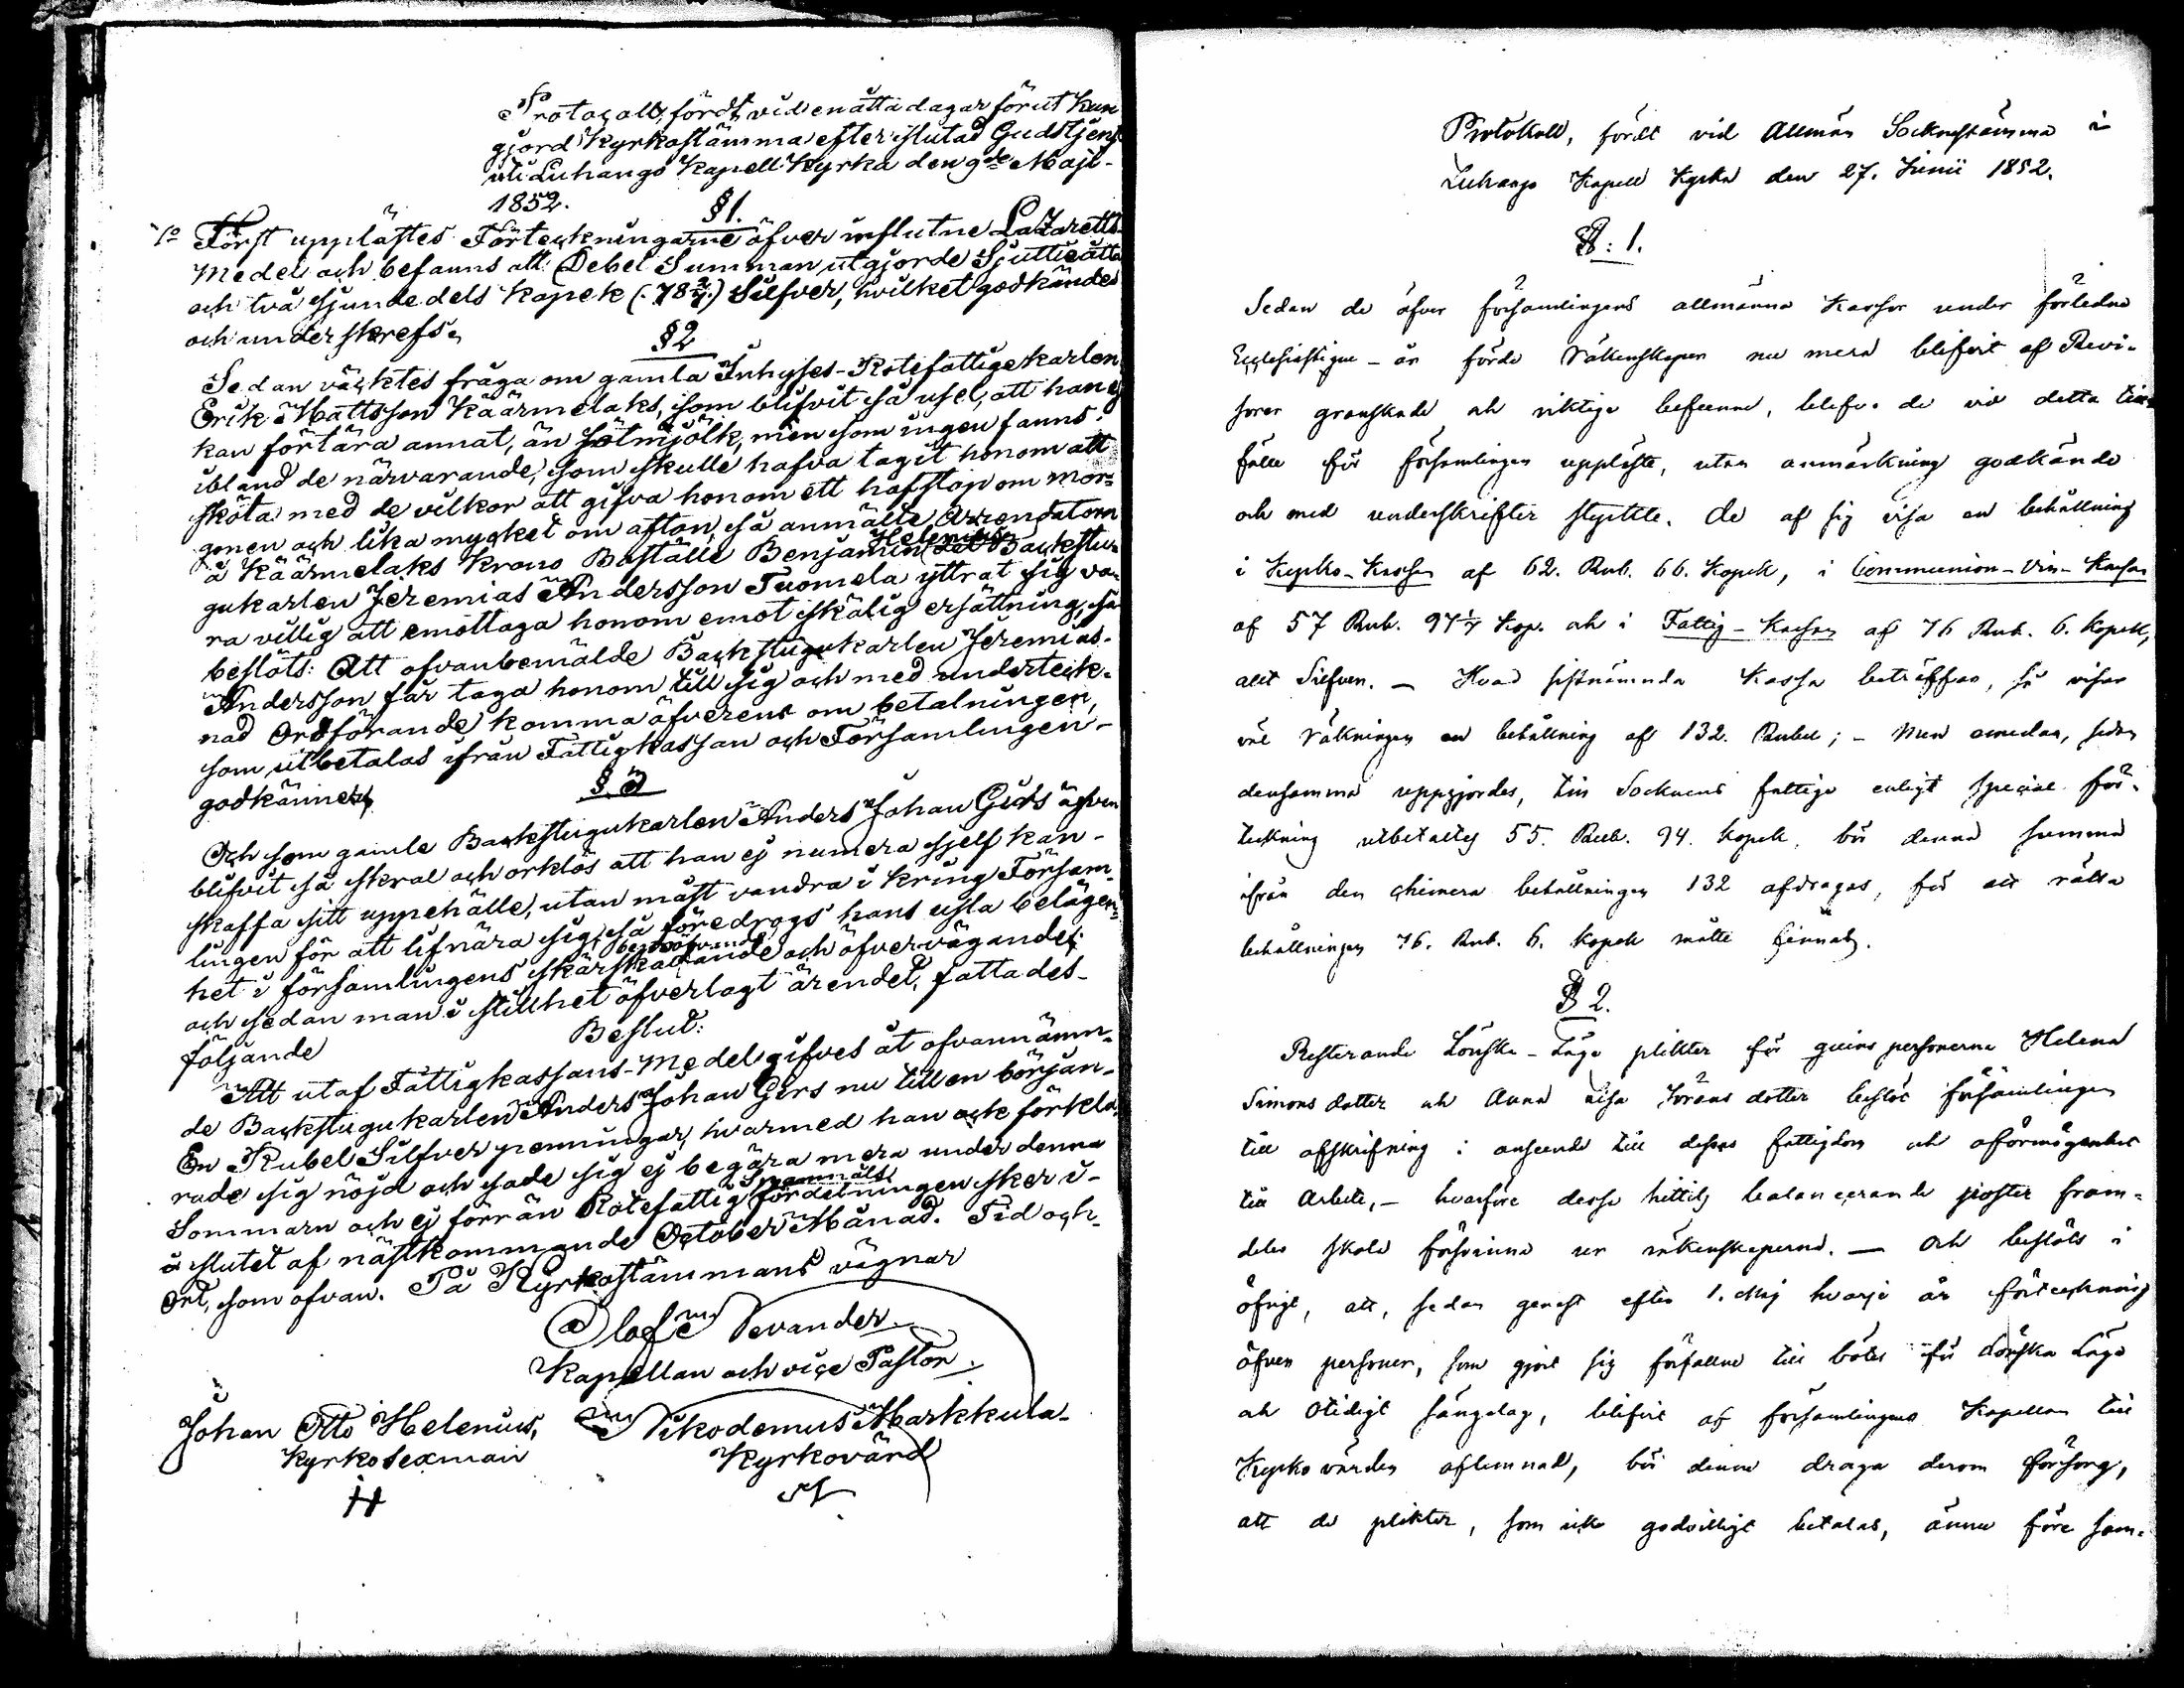 Protocoll, fördt vid en åtta dagar förut kun
gjord Kyrkostämma efter slutad Gudstjenst
uti Luhango Kapell Kyrka den 9de Maji-
1852.
§1.
1o Först upplästes Förteckningarne öfver influtne Lazaretts
Medel och befanns att Debet Summan utgjorde Sjuttioåtta
och två sjundedels kopek (78 2/7.) Silfver, hvilket godkändes
och underskrefs.
§2
Sedan väcktes fråga om gamla Inhyses-Rotefattigekarlen
Erik Mattsson Käärmelaks, som blifvit så usel, att han ej
kan förtära annat, än sötmjölk, men som ingen fanns
ibland de närvarande, som skulle hafva tagit honom att
sköta med de vilkor att gifva honom ett halfstop om mor-
gonen och lika mycket om afton, så anmälte Arrendatorn
å Käärmelaks Krono Boställe Benjamin Helenius det Backstu-
gukarlen Jeremias Andersson Tuomela yttrat sig va-
ra villig att emottaga honom emot skälig ersättning, så
beslöts: Att ofvanbemälde Backstugukarlen Jeremias-
Andersson får taga honom till sig och med underteck-
nad Ordförande komma öfverens om betalningen,
som utbetalas ifrån Fattigkassan och Församlingen-
godkänner.
§.3
Och som gamle Backstugukarlen Anders Johan Girs äfven
blifvit så skral och orklös att han ej numera sjelf kan-
skaffa sitt uppehälle, utan måst vandra i kring Försam-
lingen för att lifnära sig, så föredrogs hans usla belägen-
het i församlingens skärskådande bepröfvande och öfvervägande;
och sedan man i stillhet öfverlagt ärendet, fattades-
följande Beslut:
Att utaf Fattigkassans-Medel gifves åt ofvannämn-
de Backstugukarlen Anders Johan Girs nu till en början-
En Rubel Silfver penningar, hvarmed han ock förkla-
rade sig nöjd och sade sig ej begära mera under denna
Sommarn och ej förr än Rotefattig fördelningen sker i-
slutet af nästkommande October Månad. Tid och-
Ort, som ofvan. På Kyrkostämmans vägnar
Olof Nevander.
Kapellan och viçe Pastor.
Johan Otto Helenius, Nikodemus Markkula-
Kyrkosexman Kyrkovärd
Protokoll, fördt vid Allmän Sockenstämma i
Luhango Kapell Kyrka den 27. Junii 1852.
§: 1.
Sedan de öfver församlingens allmänna Kassor under förledne
Ecclesiastique-år förde räkenskaper nu mera blifvit af Revi-
sorer granskade och riktige befunne, blefvo de vid detta till-
fälle för församlingen uppläste, utan anmärkning godkände
och med underskrifter styrkte. De af sig visa en behållning
i Kyrko-Kassan af 62. Rub. 66. Kopek, i Communion-Vin-Kassan
af 57 Rub. 97 1/7 Kop. och i Fattig-Kassan af 76 Rub. 6. Kopek,
allt Silfver. — Hvad sistnämnda Kassa beträffar, så visar
väl räkningen en behållning af 132. Rubel; - Men emedan, sedan
densamma uppgjordes, till Socknens fattige enligt special för-
teckning utbetalts 55. Rub. 94. Kopek, bör denna summa
ifrån den chimera behållningen 132 afdragas, för att rätta
behållningen 76. Rub. 6. Kopek måtte finnas.
§ 2.
Resterande Lönska-Läge plikter för qvinspersonerne Helena
Simonsdotter och Anna Lisa Göransdotter beslöt församlingen
till afskrifning i anseende till desses fattigdom och oförmögenhet
till Arbete,- hvarföre desse hittills balancerande poster fram-
deles skola försvinna ur räkenskaperne. — Och beslöts i
öfrigt, att, sedan genast efter 1. Maj hvarje år förteckning
öfver personer, som gjort sig förfallne till böter för Lönska Läge
och Otidigt sängelag, blifvit af församlingens Kapellan till
Kyrkovärden aflemnad, bör denne draga derom försorg,
att de plikter, som icke godvilligt betalas, ännu före som-